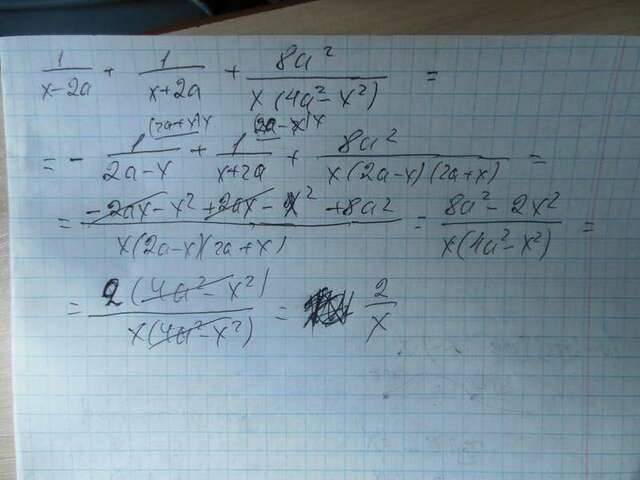 1/(x-2a) + 1/(x+2a) + 8a²/(x(4a²-x²)) =
= - 1/(2a-x) (2a+x)x + 1/(x+2a) (2a-x)x + 8a²/(x(2a-x)(2a+x)) =
= (-2ax-x²+2ax-x²+8a²)/(x(2a-x)(2a+x)) = (8a²-2x²)/(x(4a²-x²)) =
= 2(4a²-x²)/(x(4a²-x²)) = 2/x